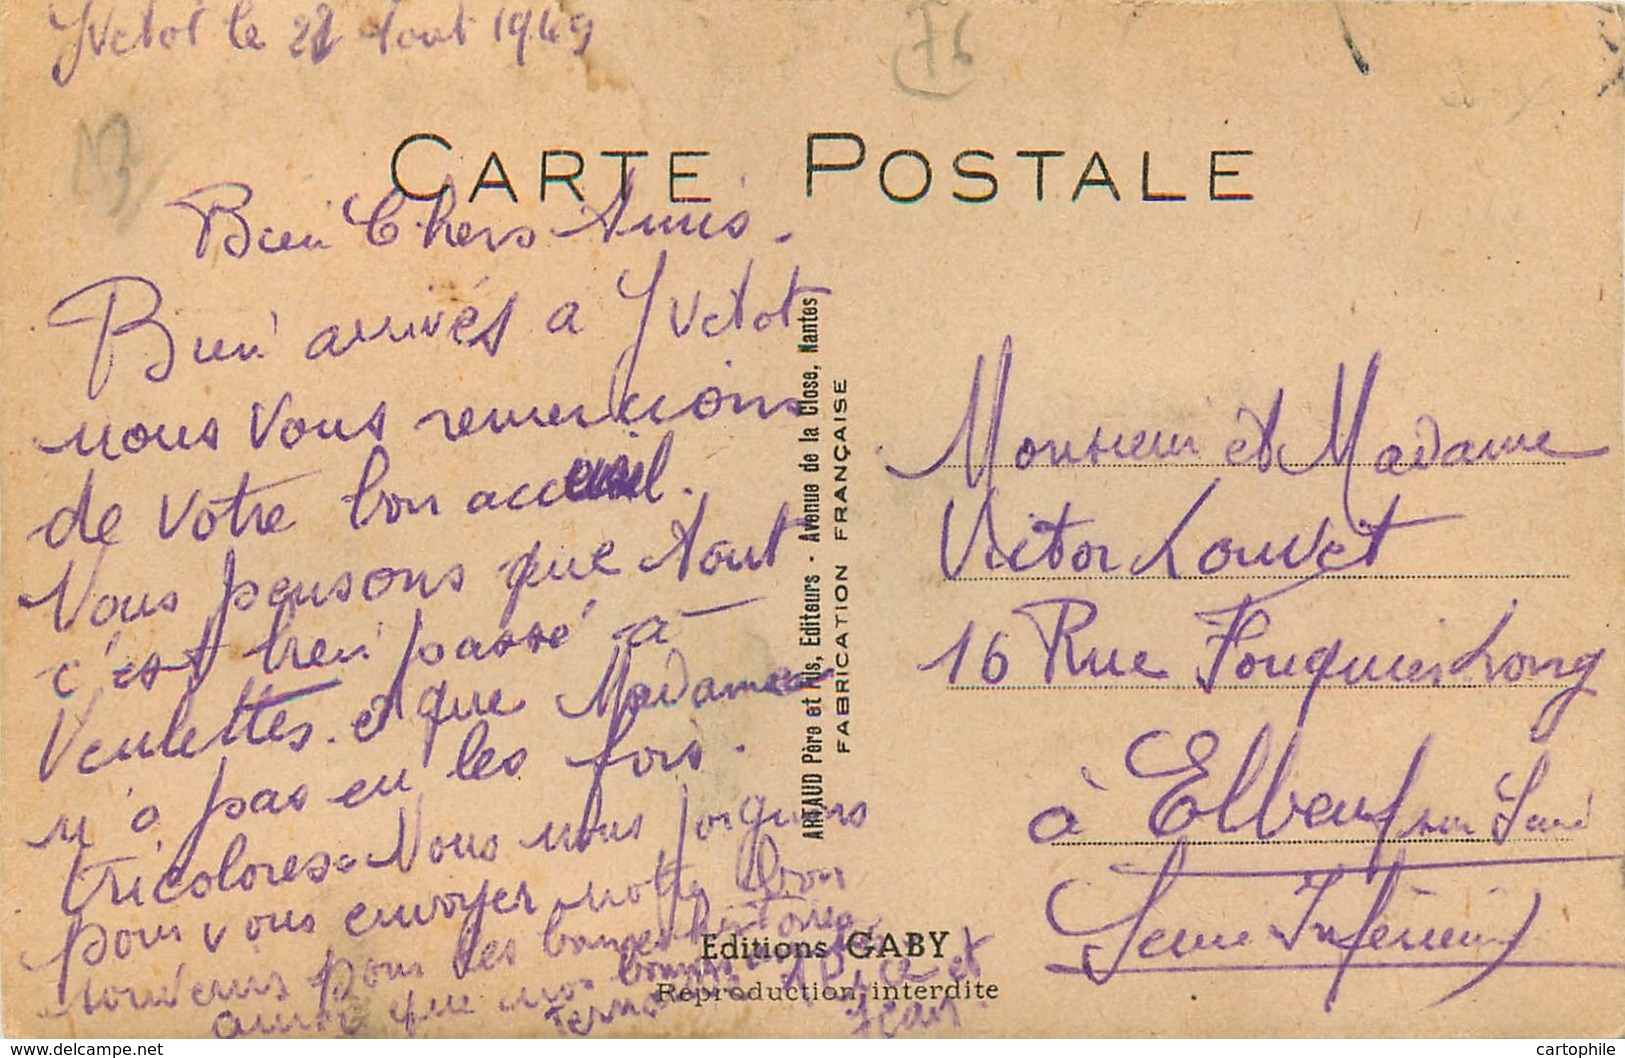 Yvetot le 22 Aout 1949
F6
CARTE POSTALE
Bien Chers Amis.
Bien arrivés a Yvetot
nous Vous remercions
de Votre bon accueil.
Nous pensons que tout
c'est bien passé à
Veulettes. et que Madame
n'a pas eu les fois.
tricolores. Nous nous joignons
pour vous envoyer notre bon
souvenir pour les
ainsi que nos bonnes
et
Jean.
ARTAUD Père et Fils, Editeurs - Avenue de la Close, Nantes
FABRICATION FRANÇAISE
Monsieur et Madame
Victor Louvet
16 Rue Fouquier Long
à Elbeuf sur Seine
Seine Inférieure
Editions GABY
Reproduction interdite
https://www.delcampe.net
cartophile